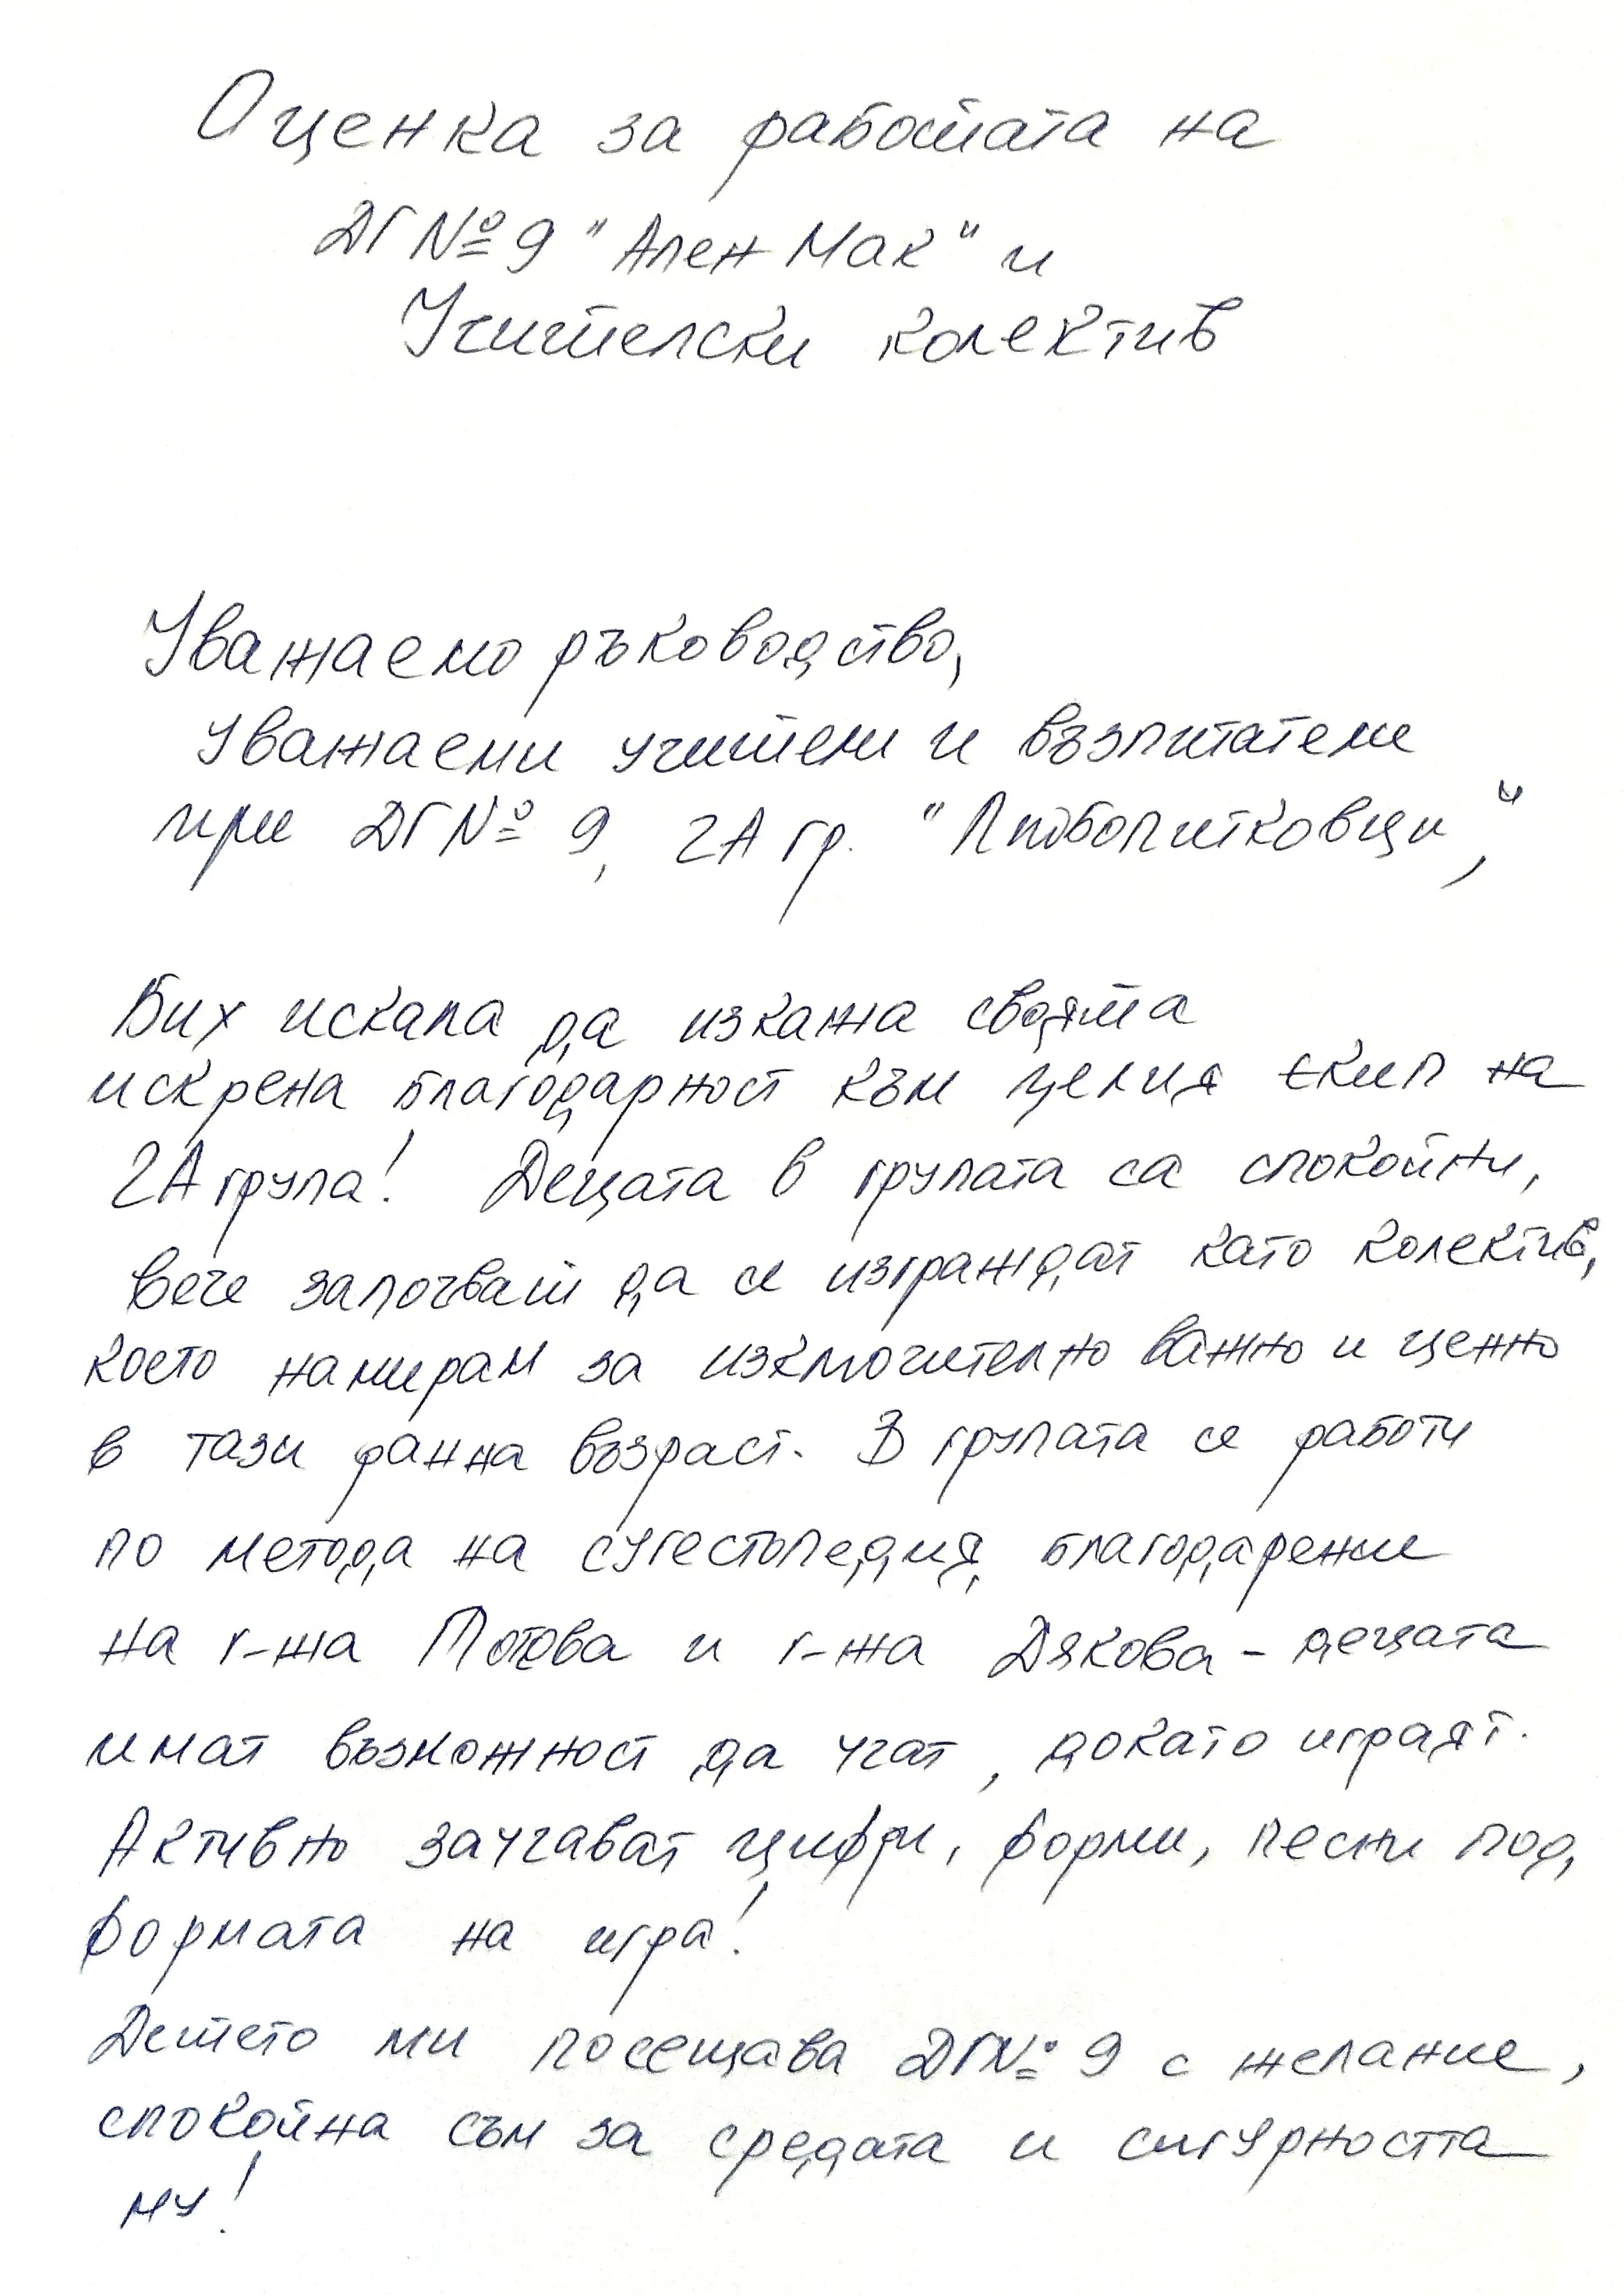 Оценка за работата на
ДГ № 9 "Ален Мак" и
Учителски колектив
Уважаемо ръководство,
Уважаеми учители и възпитатели
при ДГ № 9, 2А гр. "Любопитковци",
Бих искала да изкажа своята
искрена благодарност към целия екип на
2А група! Децата в групата са спокойни,
вече започват да се изграждат като колектив,
което намирам за изключително важно и ценно
в тази ранна възраст. В групата се работи
по метода на сугестопедия, благодарение
на г-жа и г-жа Дякова - децата
имат възможност да учат, докато играят.
Активно заучават цифри, форми, песни под
формата на игра!
Детето ми посещава ДГ № 9 с желание,
спокойна съм за средата и сигурността
му!